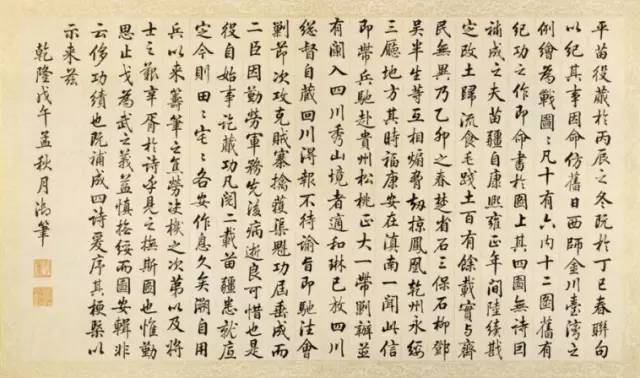 平苗役蕆於丙辰之冬既於丁巳春聯句
以紀其事因命仿舊日西師金川臺灣之
例繪為戰圖〻凡十有六內十二圖舊有
紀功之作即命書於圖上其四圖無詩因
補成之夫苗疆自康熙雍正年間陸續戡
定改土歸流食毛踐土百有餘載實与齊
民無異乃乙卯之春楚省石三保石柳鄧
吳半生等互相煽脅劫掠鳳凰乾州永綏
三廳地方其時福康安在滇南一聞此信
即帶兵馳赴貴州松桃正大一帶剿辦並
有闌入四川秀山境者適和琳已放四川
總督自藏回川得報不待諭旨即馳往會
剿節次攻克賊寨擒獲渠魁功屆垂成而
二臣因勤勞軍務先後病逝良可惜也是
役自始事訖蕆功凡閱二載苗疆悉就底
定今則田〻宅〻各安作息久矣溯自用
兵以來籌筆之宜勞決機之次第以及將
士之艱辛胥於詩乎見之撫斯圖也惟勤
思止戈為武之義益慎拊綏而圖安輯非
云侈功績也既補成四詩爰序其梗槩以
示來茲
乾隆戊午孟秋月御筆